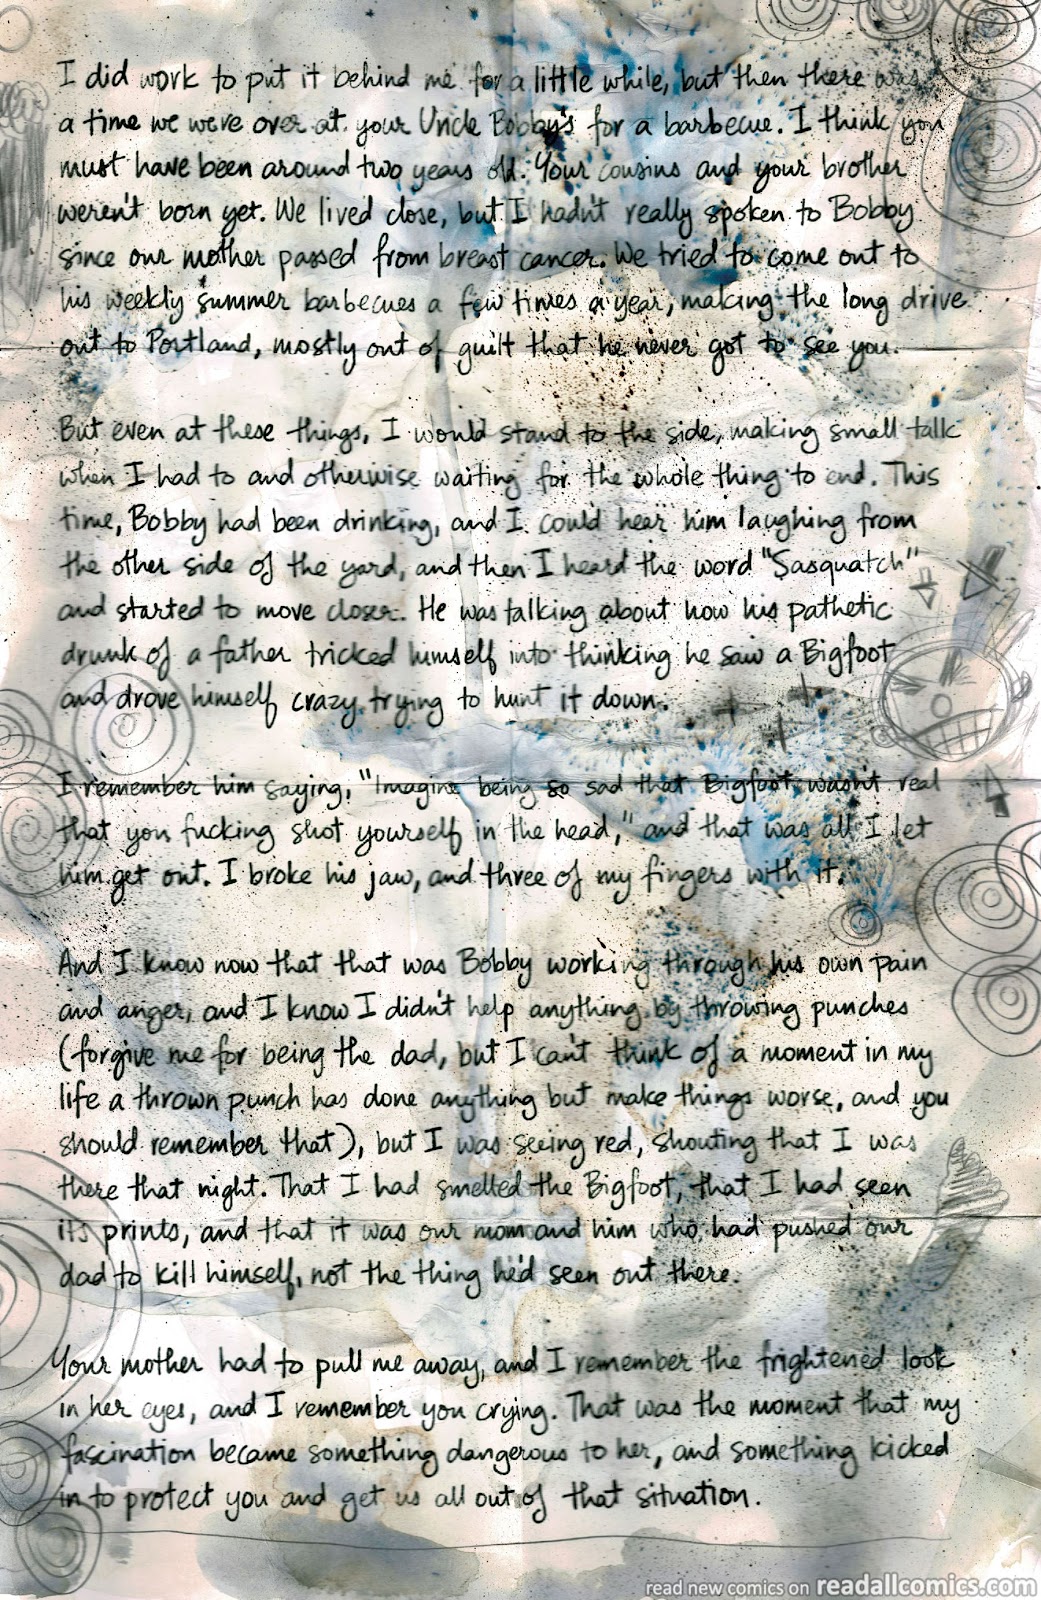 I did work to put it behind me for a little while, but then there was
a time we were over at your Uncle Bobby's for a barbecue. I think you
must have been around two years old. Your cousins and your brother
weren't born yet. We lived close, but I hadn't really spoken to Bobby
since our mother passed from breast cancer. We tried to come out to
his weekly summer barbecues a few times a year, making the long drive
out to Portland, mostly out of guilt that he never got to see you.
But even at these things, I would stand to the side, making small talk
when I had to and otherwise waiting for the whole thing to end. This
time, Bobby had been drinking, and I could hear him laughing from
the other side of the yard, and then I heard the word "Sasquatch"
and started to move closer. He was talking about how his pathetic
drunk of a father tricked himself into thinking he saw a Bigfoot
and drove himself crazy trying to hunt it down.
I remember him saying, "Imagine being so sad that Bigfoot wasn't real
that you fucking shot yourself in the head," and that was all I let
him get out. I broke his jaw, and three of my fingers with it.
And I know now that that was Bobby working through his own pain
and anger, and I know I didn't help anything by throwing punches
(forgive me for being the dad, but I can't think of a moment in my
life a thrown punch has done anything but make things worse, and you
should remember that), but I was seeing red, shouting that I was
there that night. That I had smelled the Bigfoot, that I had seen
its prints, and that it was our mom and him who had pushed our
dad to kill himself, not the thing he'd seen out there.
Your mother had to pull me away, and I remember the frightened look
in her eyes, and I remember you crying. That was the moment that my
fascination became something dangerous to her, and something kicked
in to protect you and get us all out of that situation.
read new comics on readallcomics.com